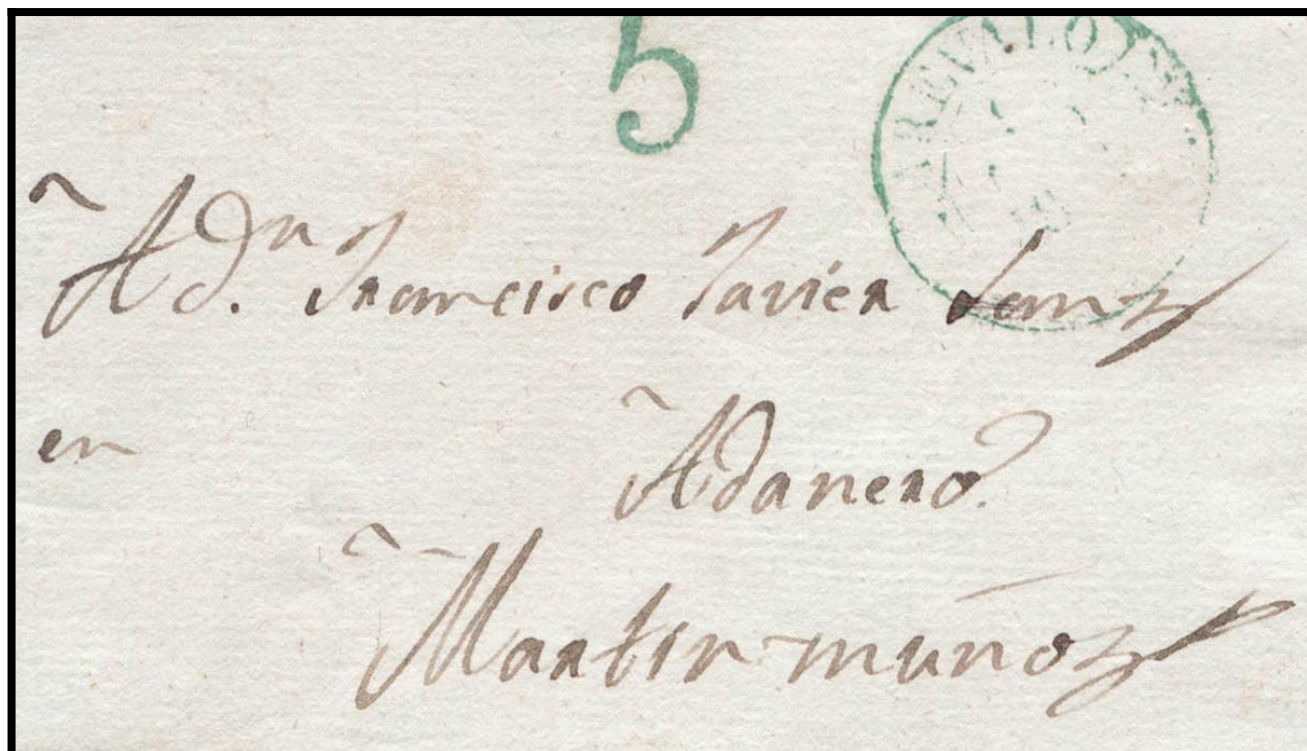 5
AREVALO
A Dn. Francisco Javier Sanz
en Adanero.
Martin muñoz